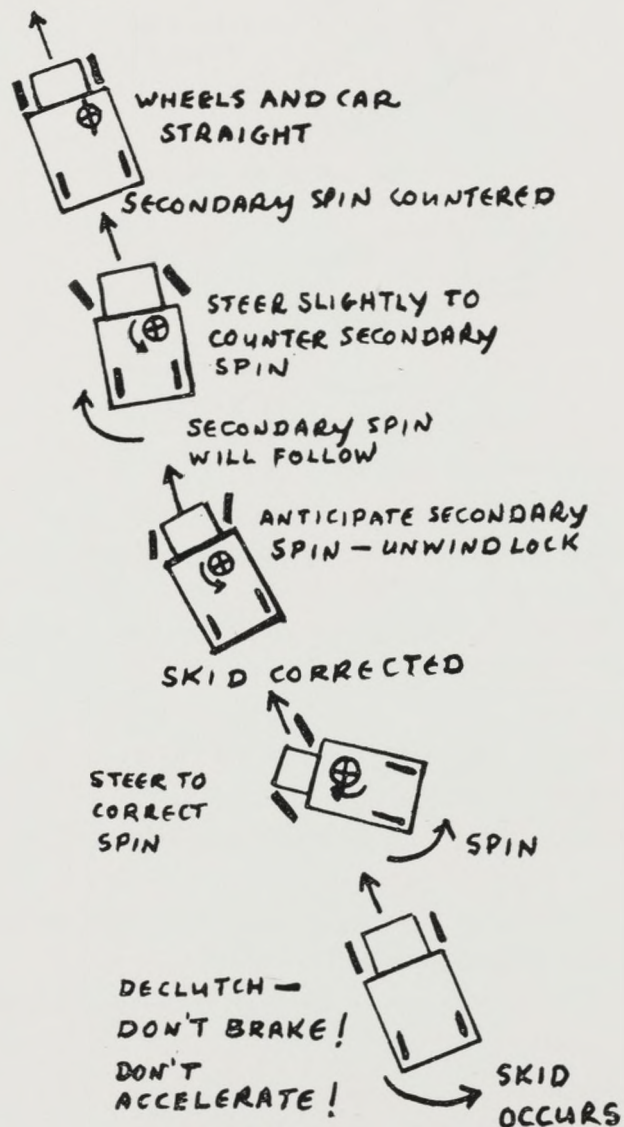 WHEELS AND CAR
STRAIGHT
SECONDARY SPIN COUNTERED
STEER SLIGHTLY TO
COUNTER SECONDARY
SPIN
SECONDARY SPIN
WILL FOLLOW
ANTICIPATE SECONDARY
SPIN – UNWIND LOCK
SKID CORRECTED
STEER TO
CORRECT
SPIN
SPIN
DECLUTCH –
DON'T BRAKE!
DON'T
ACCELERATE!
SKID
OCCURS